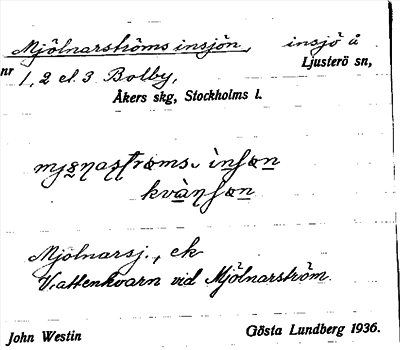 Mjölnarströms insjön, insjö å
Ljusterö sn,
nr 1, 2 el. 3 Bolby,
Åkers skg, Stockholms l.
kvànʃɷn
Mjölnarsj., ek
Vattenkvarn vid Mjölnarström.
John Westin Gösta Lundberg 1936.